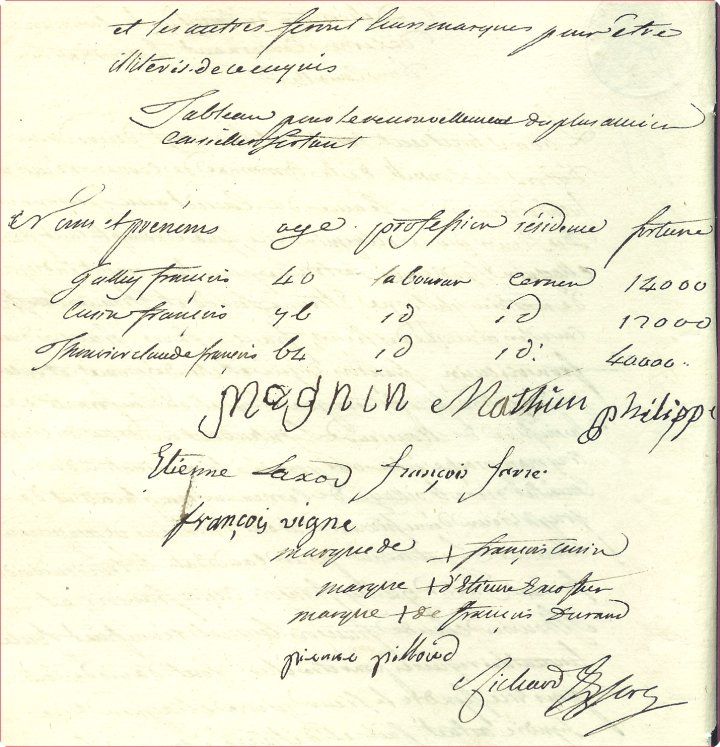 et les autres feront leurs marques pour être
illiterés. de ce enquis
Tableau pour le renouvellement du plus ancien
Conseiller sortant
Noms et prénoms age profession résidence fortune
françois 40 laboureur cernex 14000
Cusin françois 76 id id 12000
claude françois 64 id id. 40000.
Magnin Mathieu philippe
Etienne Saxod françois favre.
françois vigne
marque de + françois Cusin
marque + d'Etienne Excoffier
marque + de françois Durand
pierre pilloud
Richard